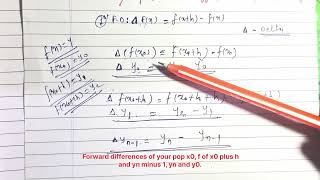 F.D: Δ f(x) = f(x+h) - f(x)
Δ - Delta
f(x) = y
f(x₀) = y₀
f(x₀+h) = y₁
Δ (f(x₀)) = f(x₀+h) - f(x₀)
Δ y₀ = y₀
Δ f(x₀+h) = f(x₀+h+h) - f(x₀+h)
Δ y₁ = y₂ - y₁
Δ yₙ₋₁ = yₙ - yₙ₋₁
Forward differences of your pop x0, f of x0 plus h
and yn minus 1, yn and y0.